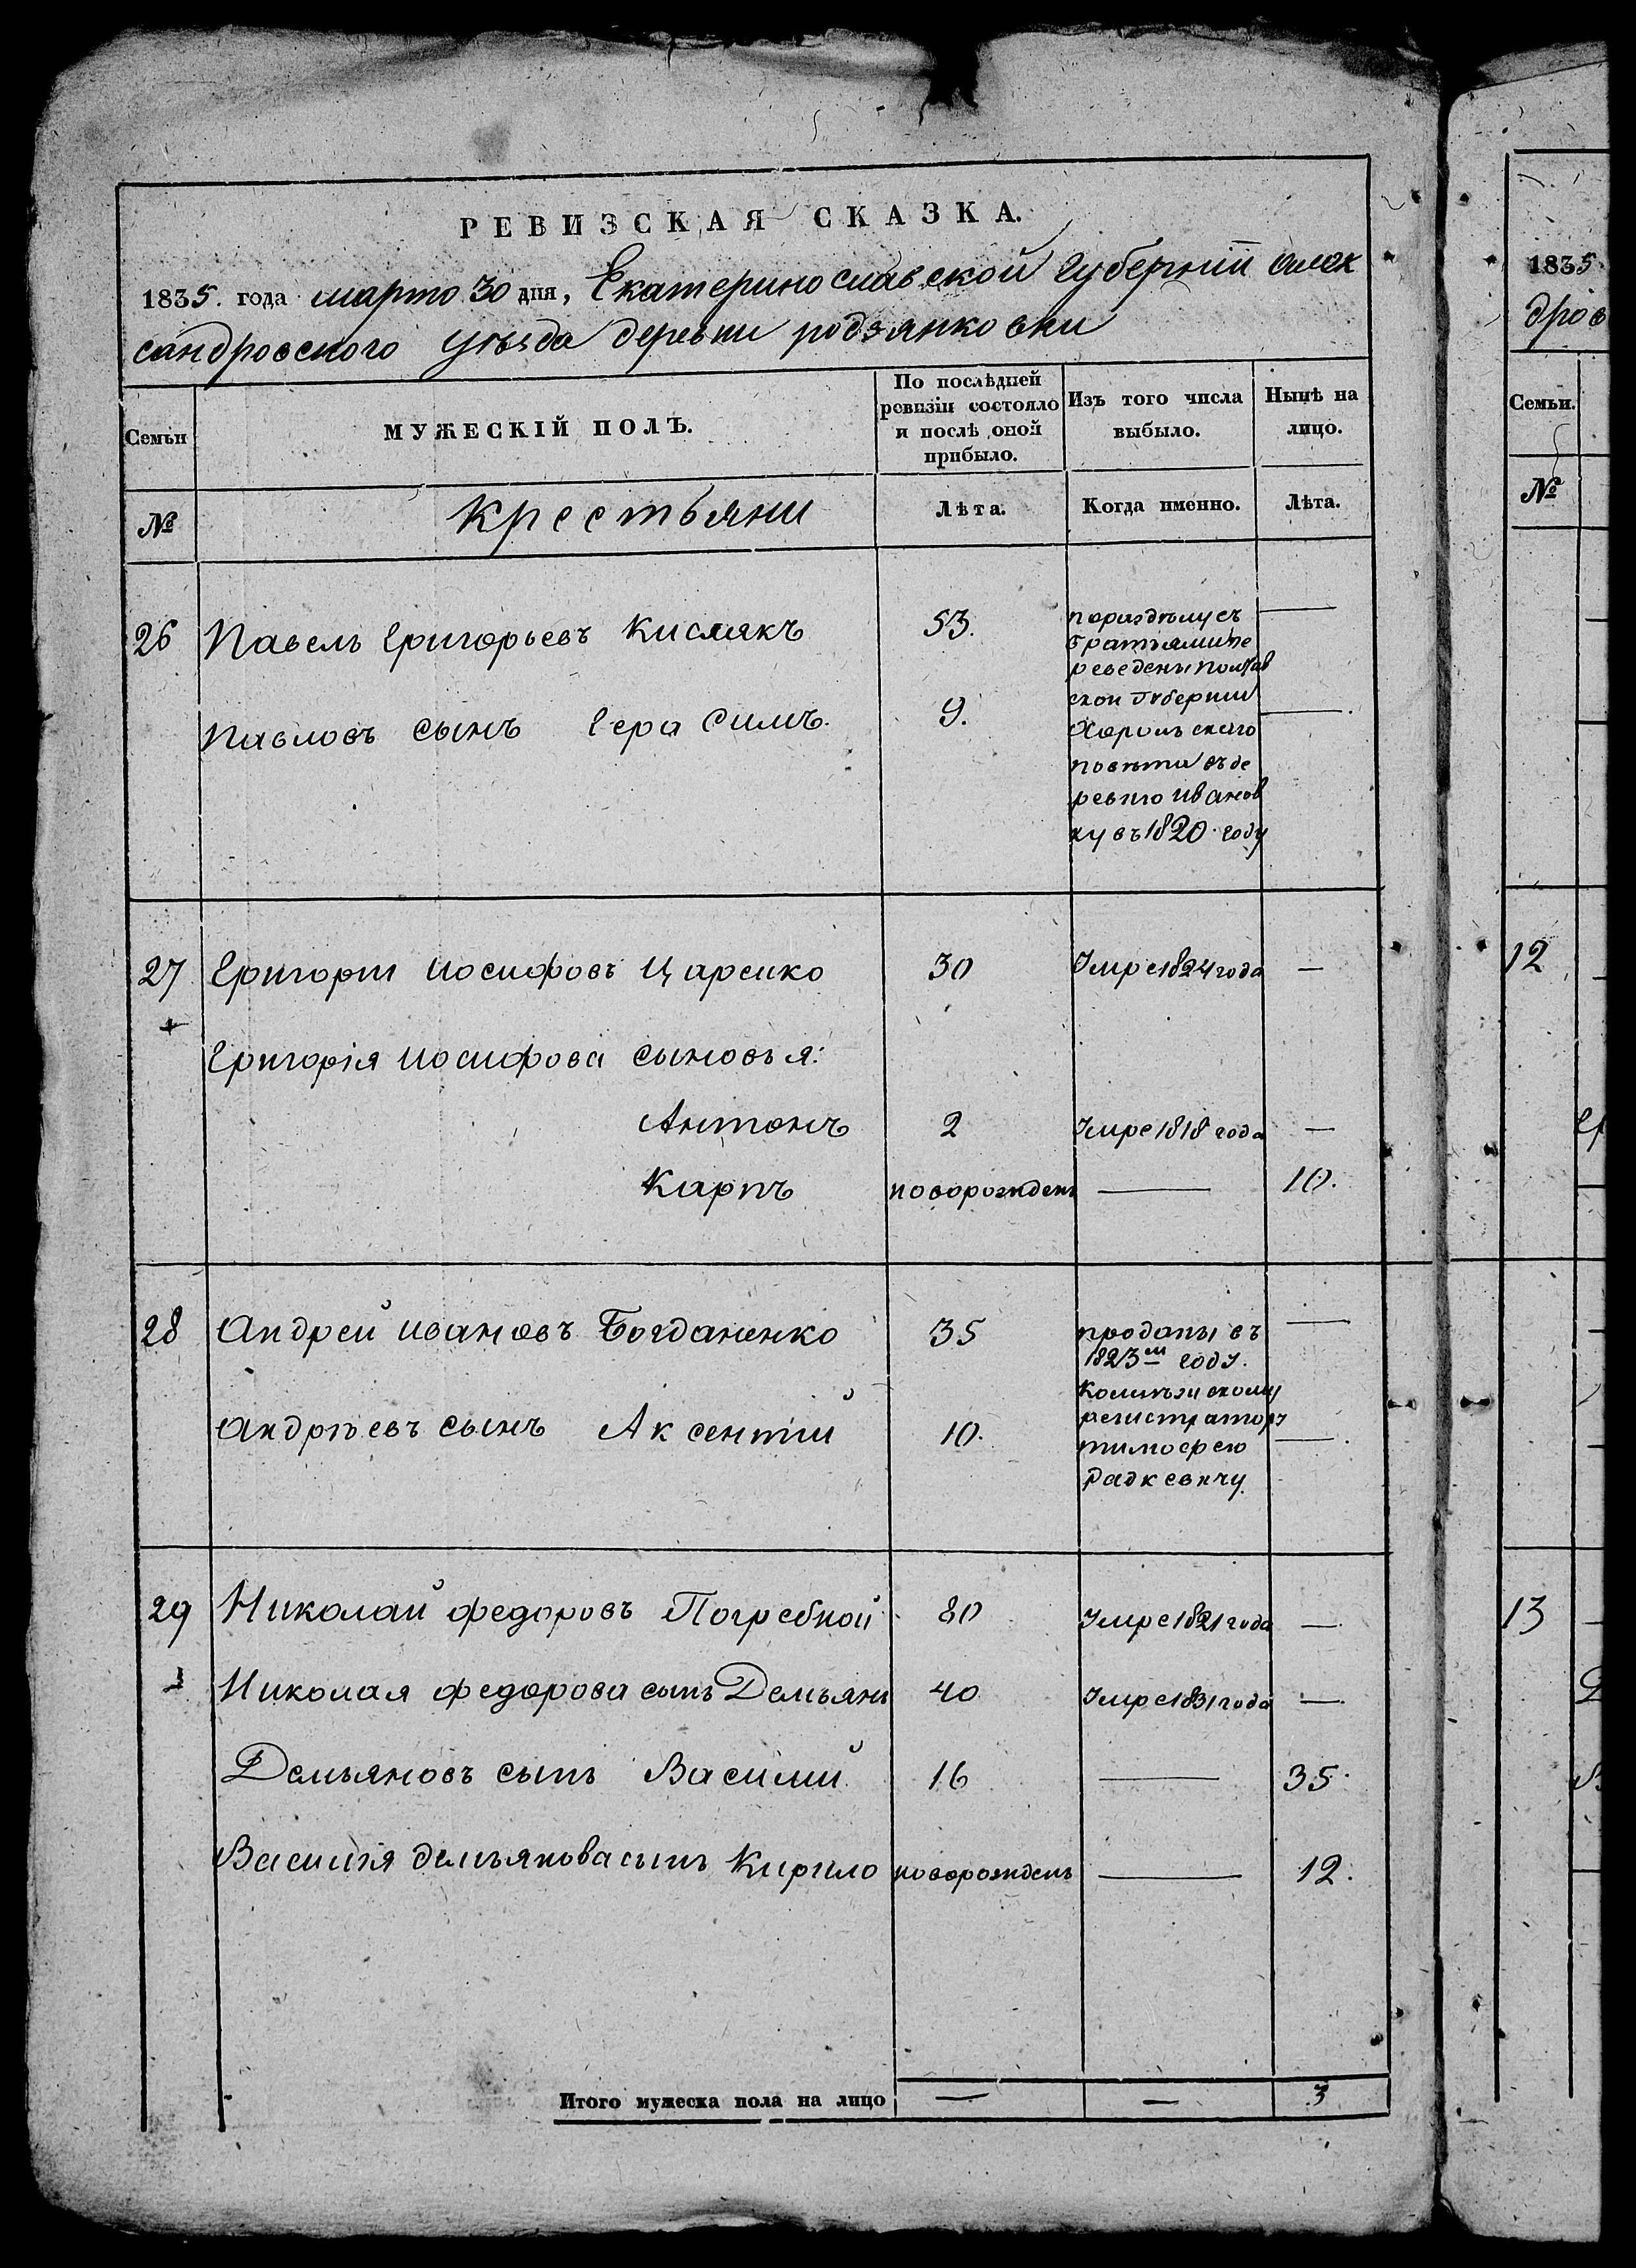 РЕВИЗСКАЯ СКАЗКА.
1835. года марта 30 дня, Екатеринославской Губернiи Алек
сандровского уѣзда деревни родзянковки
Семьи
МУЖЕСКIЙ ПОЛЪ.
По послѣдней ревизiи состояло и послѣ оной прибыло.
Изъ того числа выбыло.
Нынѣ на лицо.
№
Крестьяни
Лѣта.
Когда именно.
Лѣта.
26 Павелъ Григорьевъ Кислякъ 53. поразделу съ
братьями пе
реведены полтав
Павловъ сынъ Герасимъ. 9. скои Губернии
Хорольскаго
повѣта въ де
ревню Иванов
ку въ 1820 году
27 Григории Иосифовъ Царенко 30 Умре 1824 года —
Григорiя Иосифова сыновья:
Антонъ 2 Умре 1818 года —
Карпъ новорожденъ — 10.
28 Андрей Ивановъ Богданенко 35 проданы въ
1823м году.
Колежскому
Андрѣевъ сынъ Аксентий 10. регистратору
тимофею
Радкевичу
29 Николай Федоровъ Погребной 80 Умре 1821 года —
Николая Федорова сынъ Демьянъ 40 Умре 1831 года —
Демьяновъ сынъ Василий 16 — 35.
Василiя Демьянова сынъ Кирило новорожденъ — 12.
Итого мужеска пола на лицо — — 3
1835.
дров
Семьи.
№
12
13